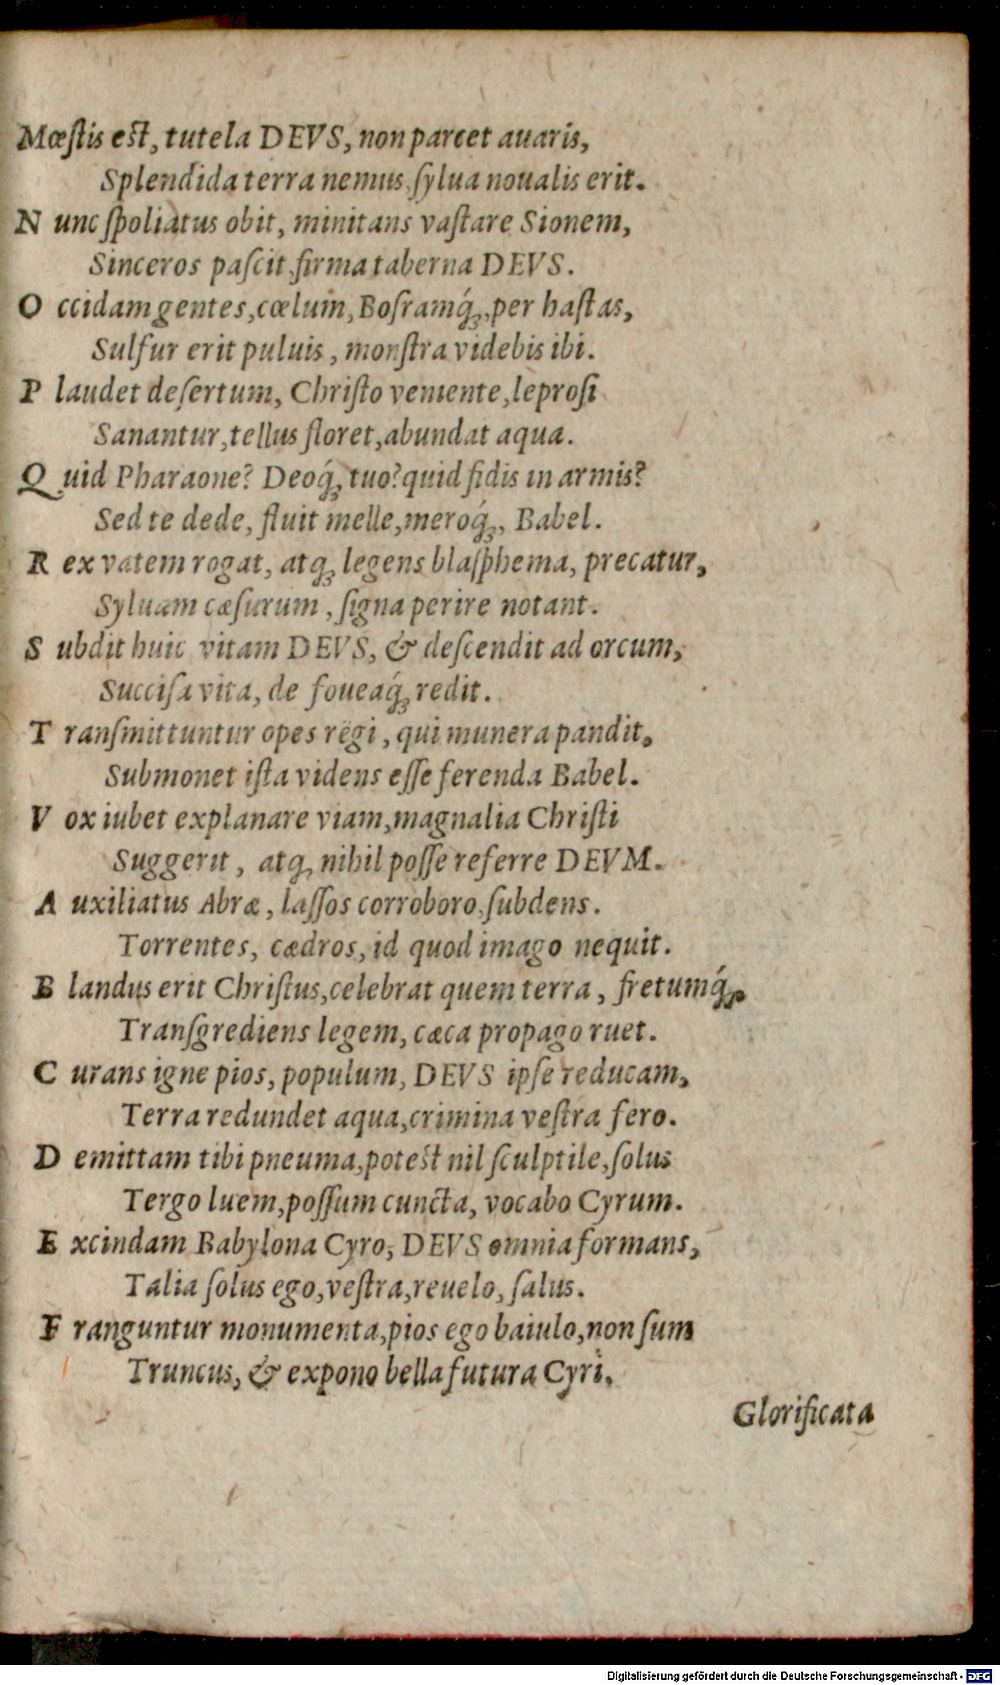 Mœſtis eſt, tutela DEVS, non parcet auaris,
Splendida terra nemus, ſylua noualis erit.
N unc ſpoliatus obit, minitans vaſtare Sionem,
Sinceros paſcit, firma taberna DEVS.
O ccidam gentes, cœlum, Boſramq́;, per haſtas,
Sulfur erit puluis, monſtra videbis ibi.
P laudet deſertum, Chriſto veniente, leproſi
Sanantur, tellus floret, abundat aqua.
Q uid Pharaone? Deoq́; tuo? quid fidis in armis?
Sed te dede, fluit melle, meroq́;, Babel.
R ex vatem rogat, atq; legens blaſphema, precatur,
Syluam cæſurum, ſigna perire notant.
S ubdit huic vitam DEVS, & deſcendit ad orcum,
Succiſa vita, de foueaq́; redit.
T ranſmittuntur opes regi, qui munera pandit,
Submonet iſta videns eſſe ferenda Babel.
V ox iubet explanare viam, magnalia Chriſti
Suggerit, atq; nihil poſſe referre DEVM.
A uxiliatus Abræ, laſſos corroboro, ſubdens.
Torrentes, cædros, id quod imago nequit.
B landus erit Chriſtus, celebrat quem terra, fretumq́;
Tranſgrediens legem, cæca propago ruet.
C urans igne pios, populum, DEVS ipſe reducam,
Terra redundet aqua, crimina veſtra fero.
D emittam tibi pneuma, poteſt nil ſculptile, ſolus
Tergo luem, poſſum cuncta, vocabo Cyrum.
E xcindam Babylona Cyro, DEVS omnia formans,
Talia ſolus ego, veſtra, reuelo, ſalus.
F ranguntur monumenta, pios ego baiulo, non ſum
Truncus, & expono bella futura Cyri.
Glorificata
Digitalisierung gefördert durch die Deutsche Forschungsgemeinschaft - DFG